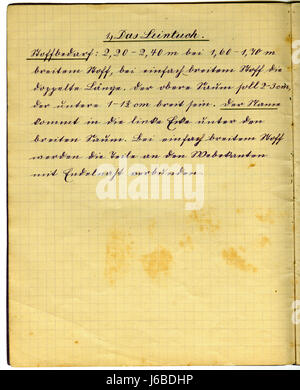 1) Das Leintuch.
Stoffbedarf: 2,20 - 2,40 m bei 1,60 - 1,70 m
breitem Stoff, bei einfach breitem Stoff die
doppelte Länge. Der obere Saum soll 2-3 cm,
der untere 1-1½ cm breit sein. Der Name
kommt in die linke Ecke unter den
breiten Saum. Bei einfach breitem Stoff
werden die Teile an den Webekanten
mit Endelnaht verbunden.
alamy
Image ID: J6BDHP
www.alamy.com